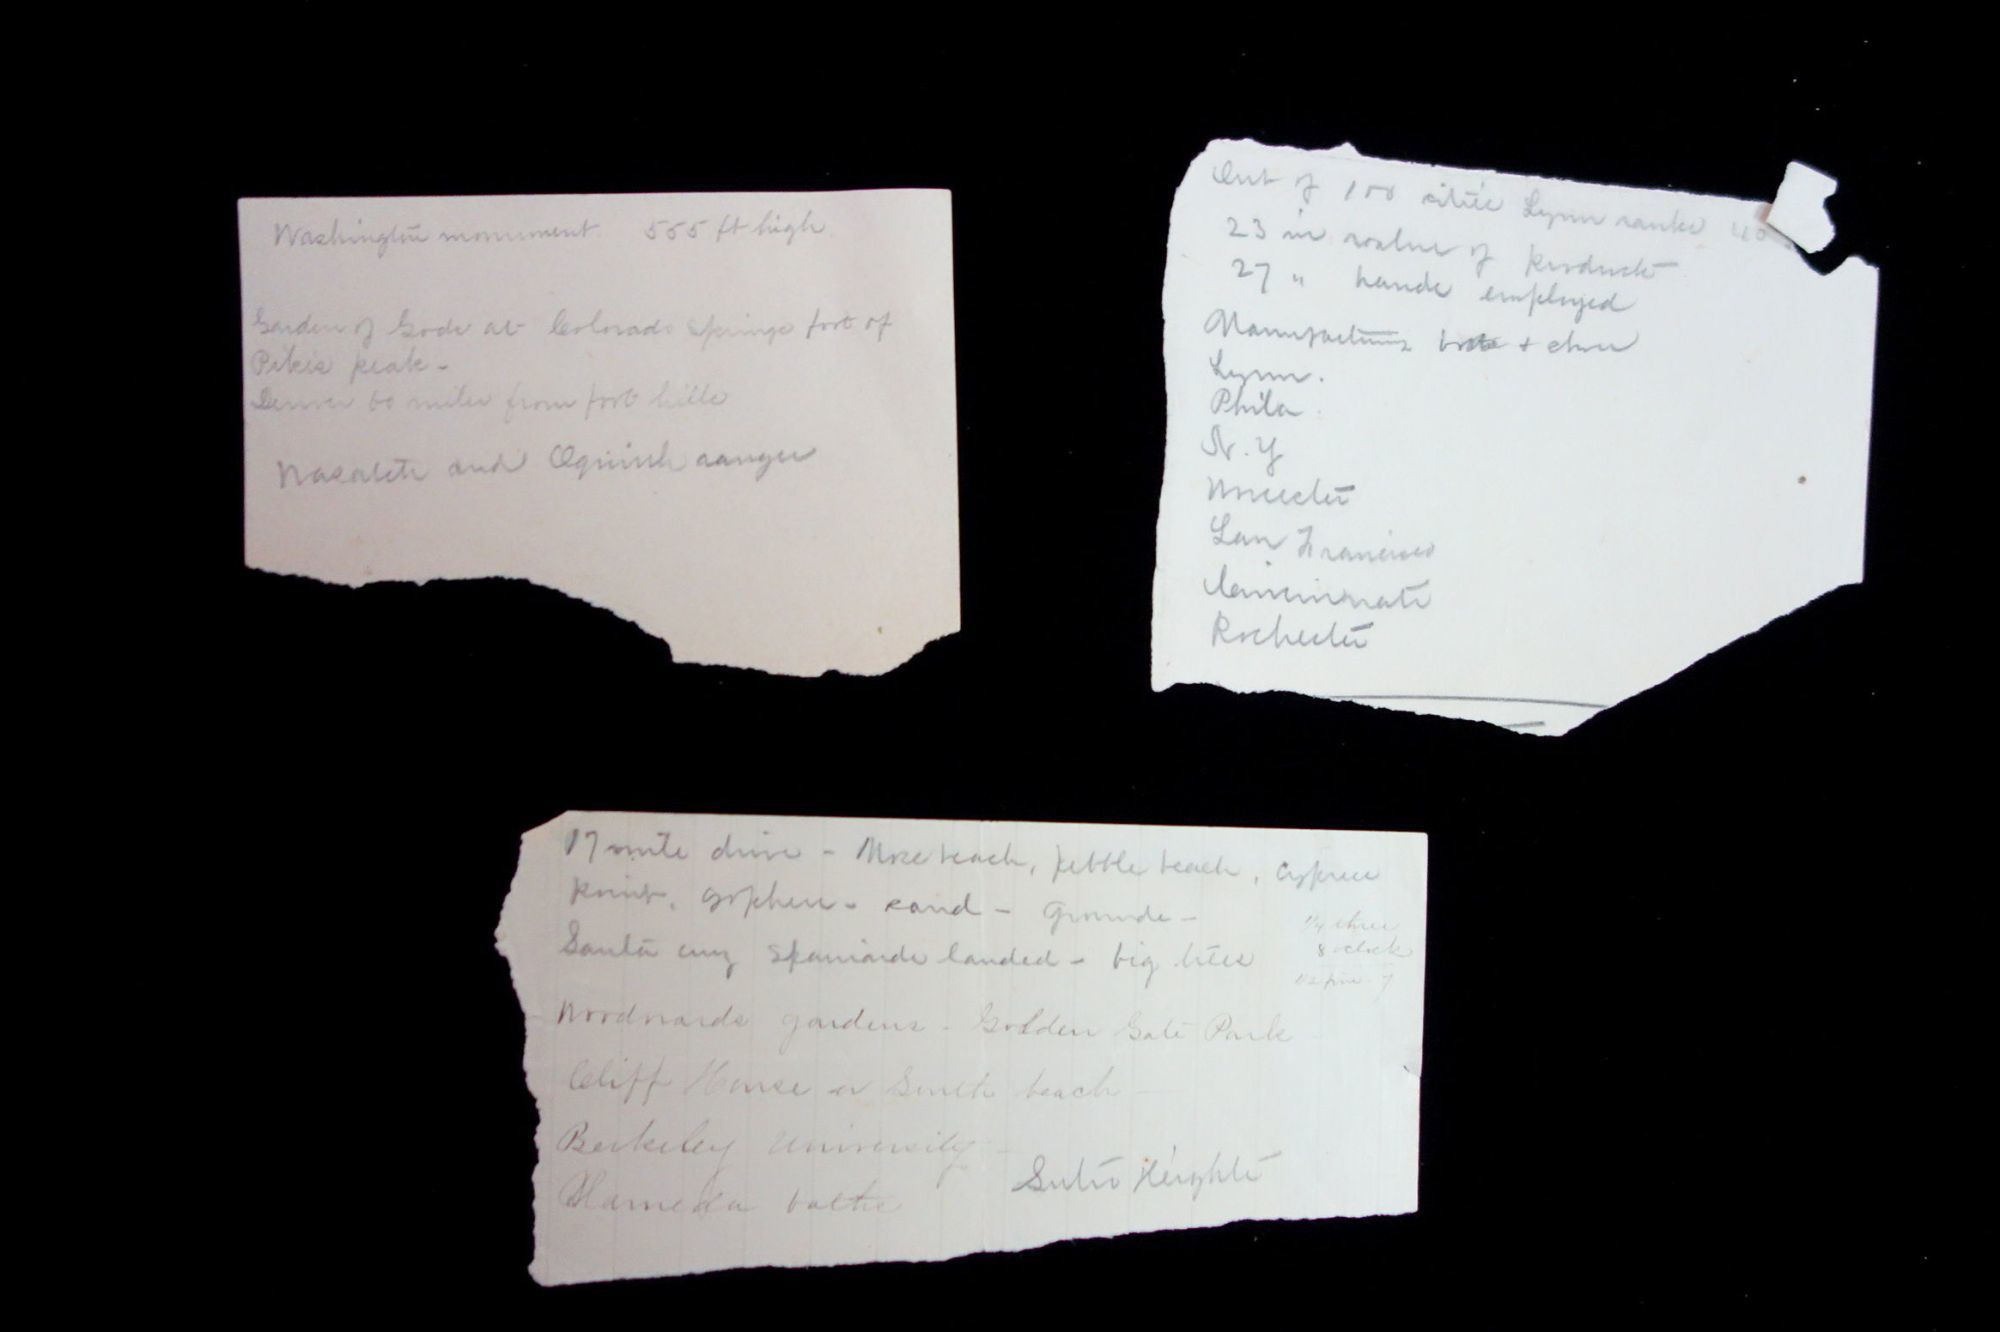 Washington monument 555 ft high
Garden of Gods at Colorado Springs foot of
Pikes peak -
Denver 60 miles from foot hills
Wasatch and Oquirrh ranges
Out of 100 cities Lynn ranks 40
23 in value of products
27 " hands employed
Manufacturing boots + shoes
Lynn.
Phila.
N. Y
Worcester
San Francisco
Cincinnati
Rochester
17 mile drive - Moss beach, pebble beach, Cypress
point, gophers - sand - grounds -
Santa Cruz Spaniards landed - big trees
1/4 three
8 oclock
1/2 7
Woodwards gardens - Golden Gate Park
Cliff House or South beach
Berkeley University
Sutro Heights
Alameda baths